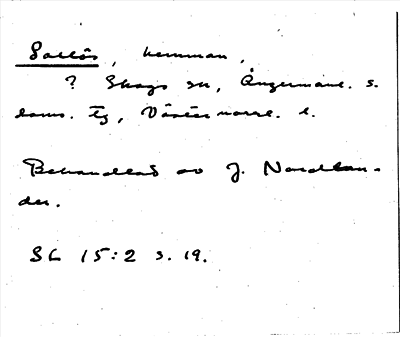 Sallås, hemman,
? Skogs sn, Ångermanl. s.
doms. tg, Västernorrl. l.
Behandlad av J. Nordlan-
der.
SL 15:2 s. 19.